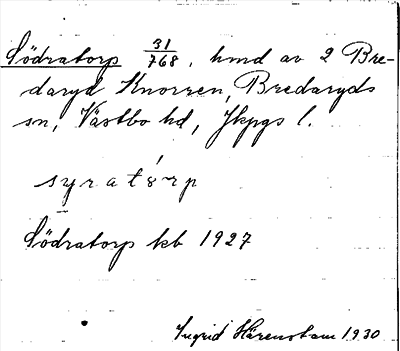 Södratorp 31/768, hmd av 2 Bre-
daryd Knorren, Bredaryds
sn, Västbo hd, Jkpgs l.
syratórp
Södratorp kb 1927
Ingrid Härenstam 1930